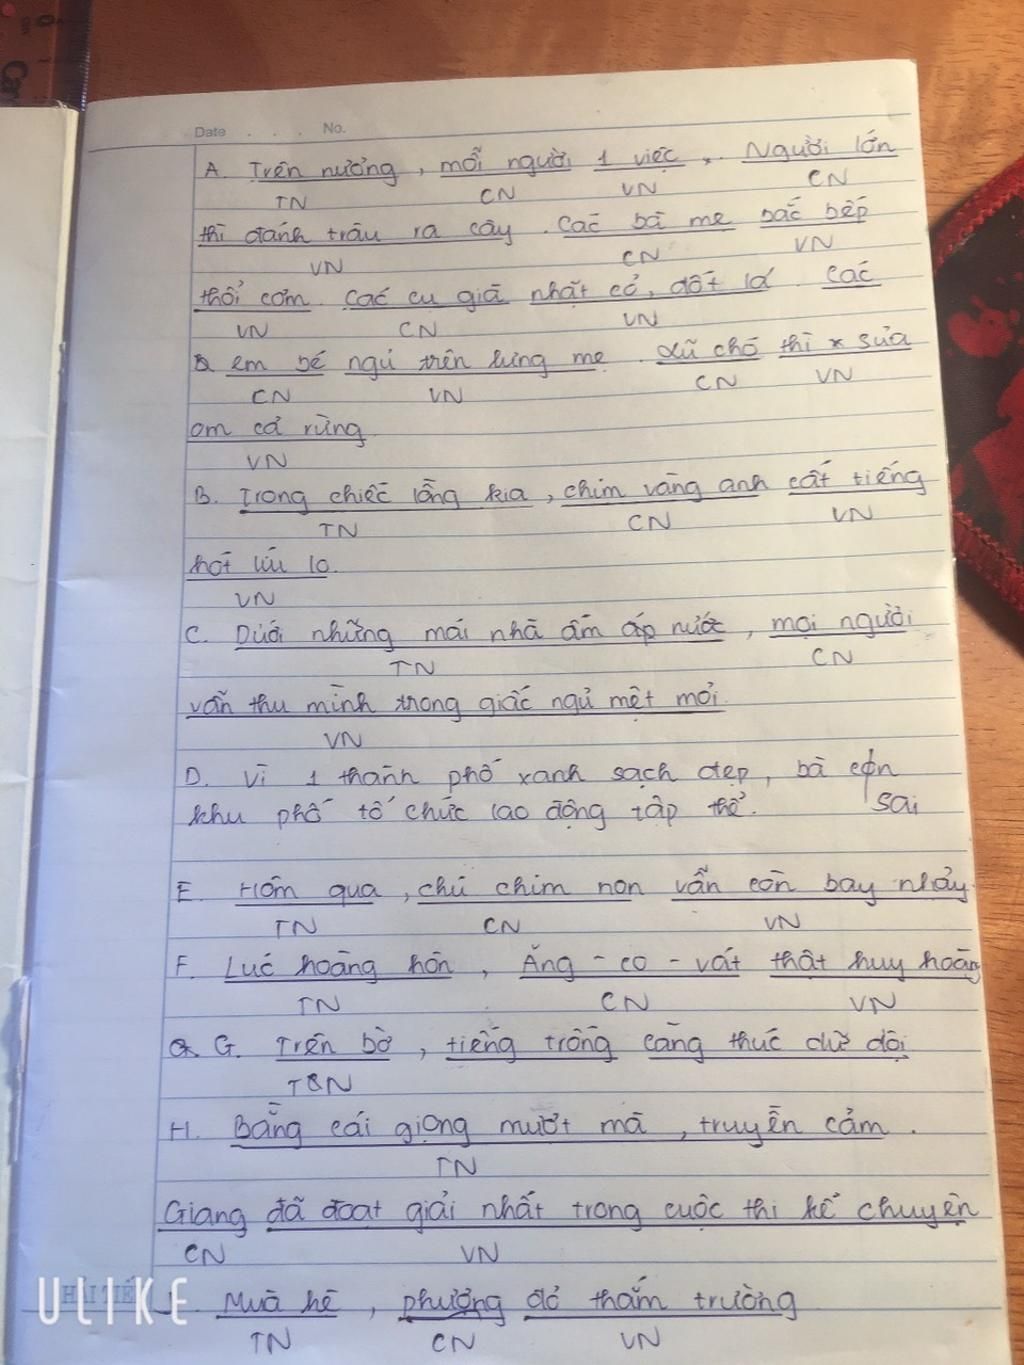 Date . . . No.
A. Trên nương, mỗi người 1 việc. Người lớn
TN CN VN CN
thì đánh trâu ra cày. Các bà mẹ bắc bếp
VN CN VN
thổi cơm. Các cụ già nhặt cỏ, đốt lá. Các
VN CN VN
em bé ngủ trên lưng mẹ. Lũ chó thì sủa
CN VN CN VN
om cả rừng
VN
B. Trong chiếc lồng kia, chim vàng anh cất tiếng
TN CN VN
hót líu lo.
VN
C. Dưới những mái nhà ẩm ướp nước, mọi người
TN CN
vẫn thu mình trong giấc ngủ mệt mỏi.
VN
D. Vì 1 thành phố xanh sạch đẹp, bà con
khu phố tổ chức lao động tập thể. sai
E. Hôm qua, chú chim non vẫn còn bay nhảy.
TN CN VN
F. Lúc hoàng hôn, Ăng-co-vát thật huy hoàng
TN CN VN
G. Trên bờ, tiếng trống càng thúc dữ dội
TN
H. Bằng cái giọng mượt mà, truyền cảm.
TN
Giang đã đoạt giải nhất trong cuộc thi kể chuyện
CN VN
HẢI TIẾN
ULIKE
Mùa hè, phượng đỏ thắm trường
TN CN VN